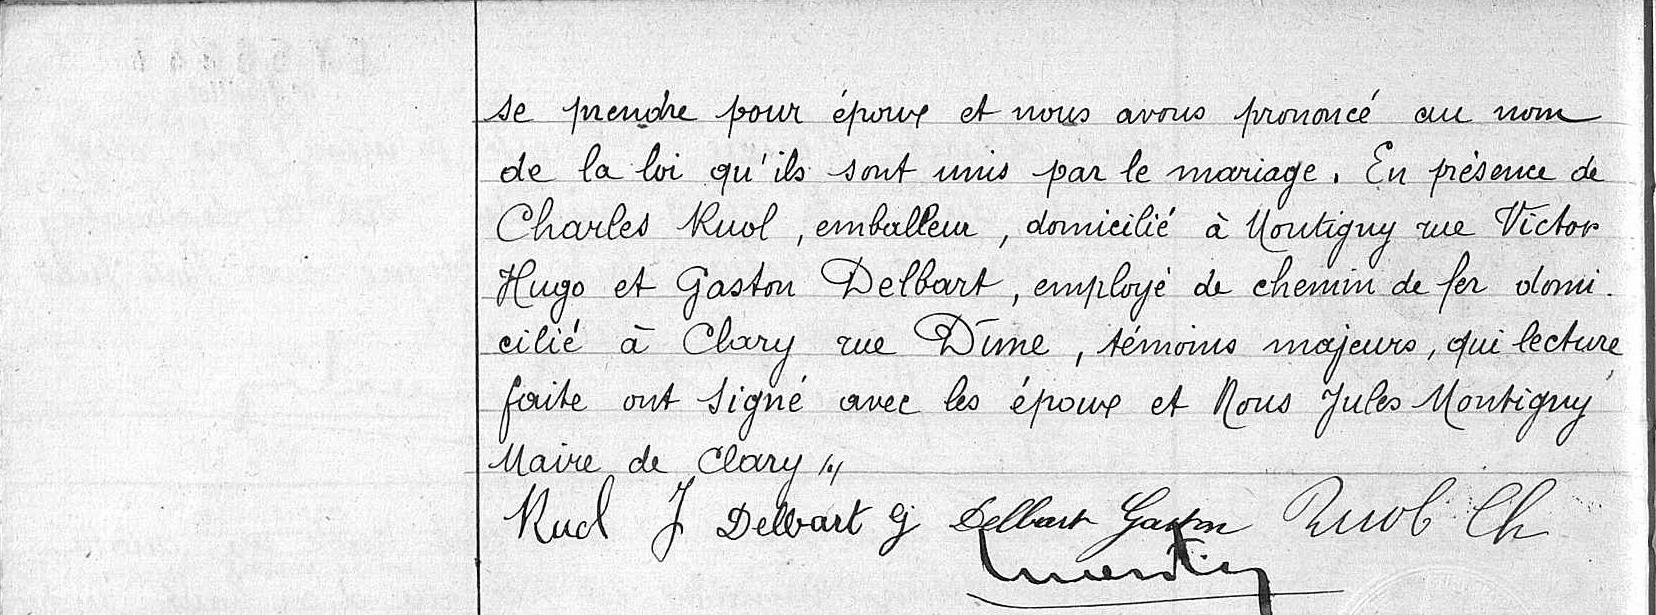 se prendre pour époux et nous avons prononcé au nom
de la loi qu'ils sont unis par le mariage. En présence de
Charles Ruol, emballeur, domicilié à Montigny rue Victor
Hugo et Gaston Delbart, employé de chemin de fer domi-
cilié à Clary rue Dîme, témoins majeurs, qui lecture
faite ont signé avec les époux et Nous Jules Montigny
Maire de Clary
Ruol J Delbart G Delbart Gaston Ruol Ch